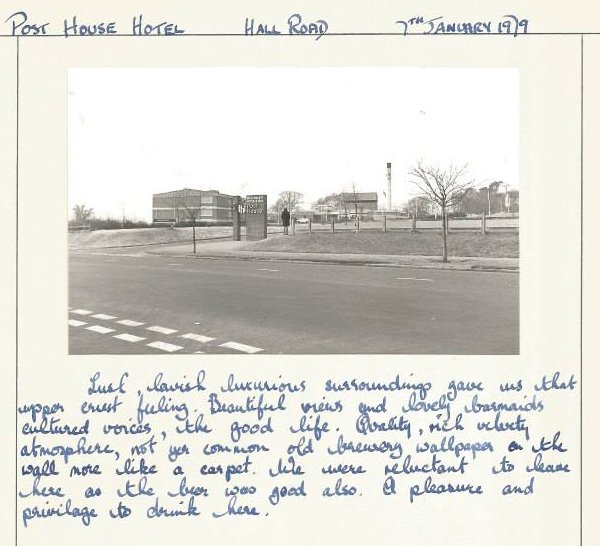 POST HOUSE HOTEL HALL ROAD 7TH JANUARY 1979
Post House
Lush, lavish luxurious surroundings gave us that
upper crust feeling. Beautiful views and lovely barmaids
cultured voices, the good life. Quality, rich velvety
atmosphere, not yer common old brewery wallpaper on the
wall more like a carpet. We were reluctant to leave
here as the beer was good also. A pleasure and
privilage to drink here.